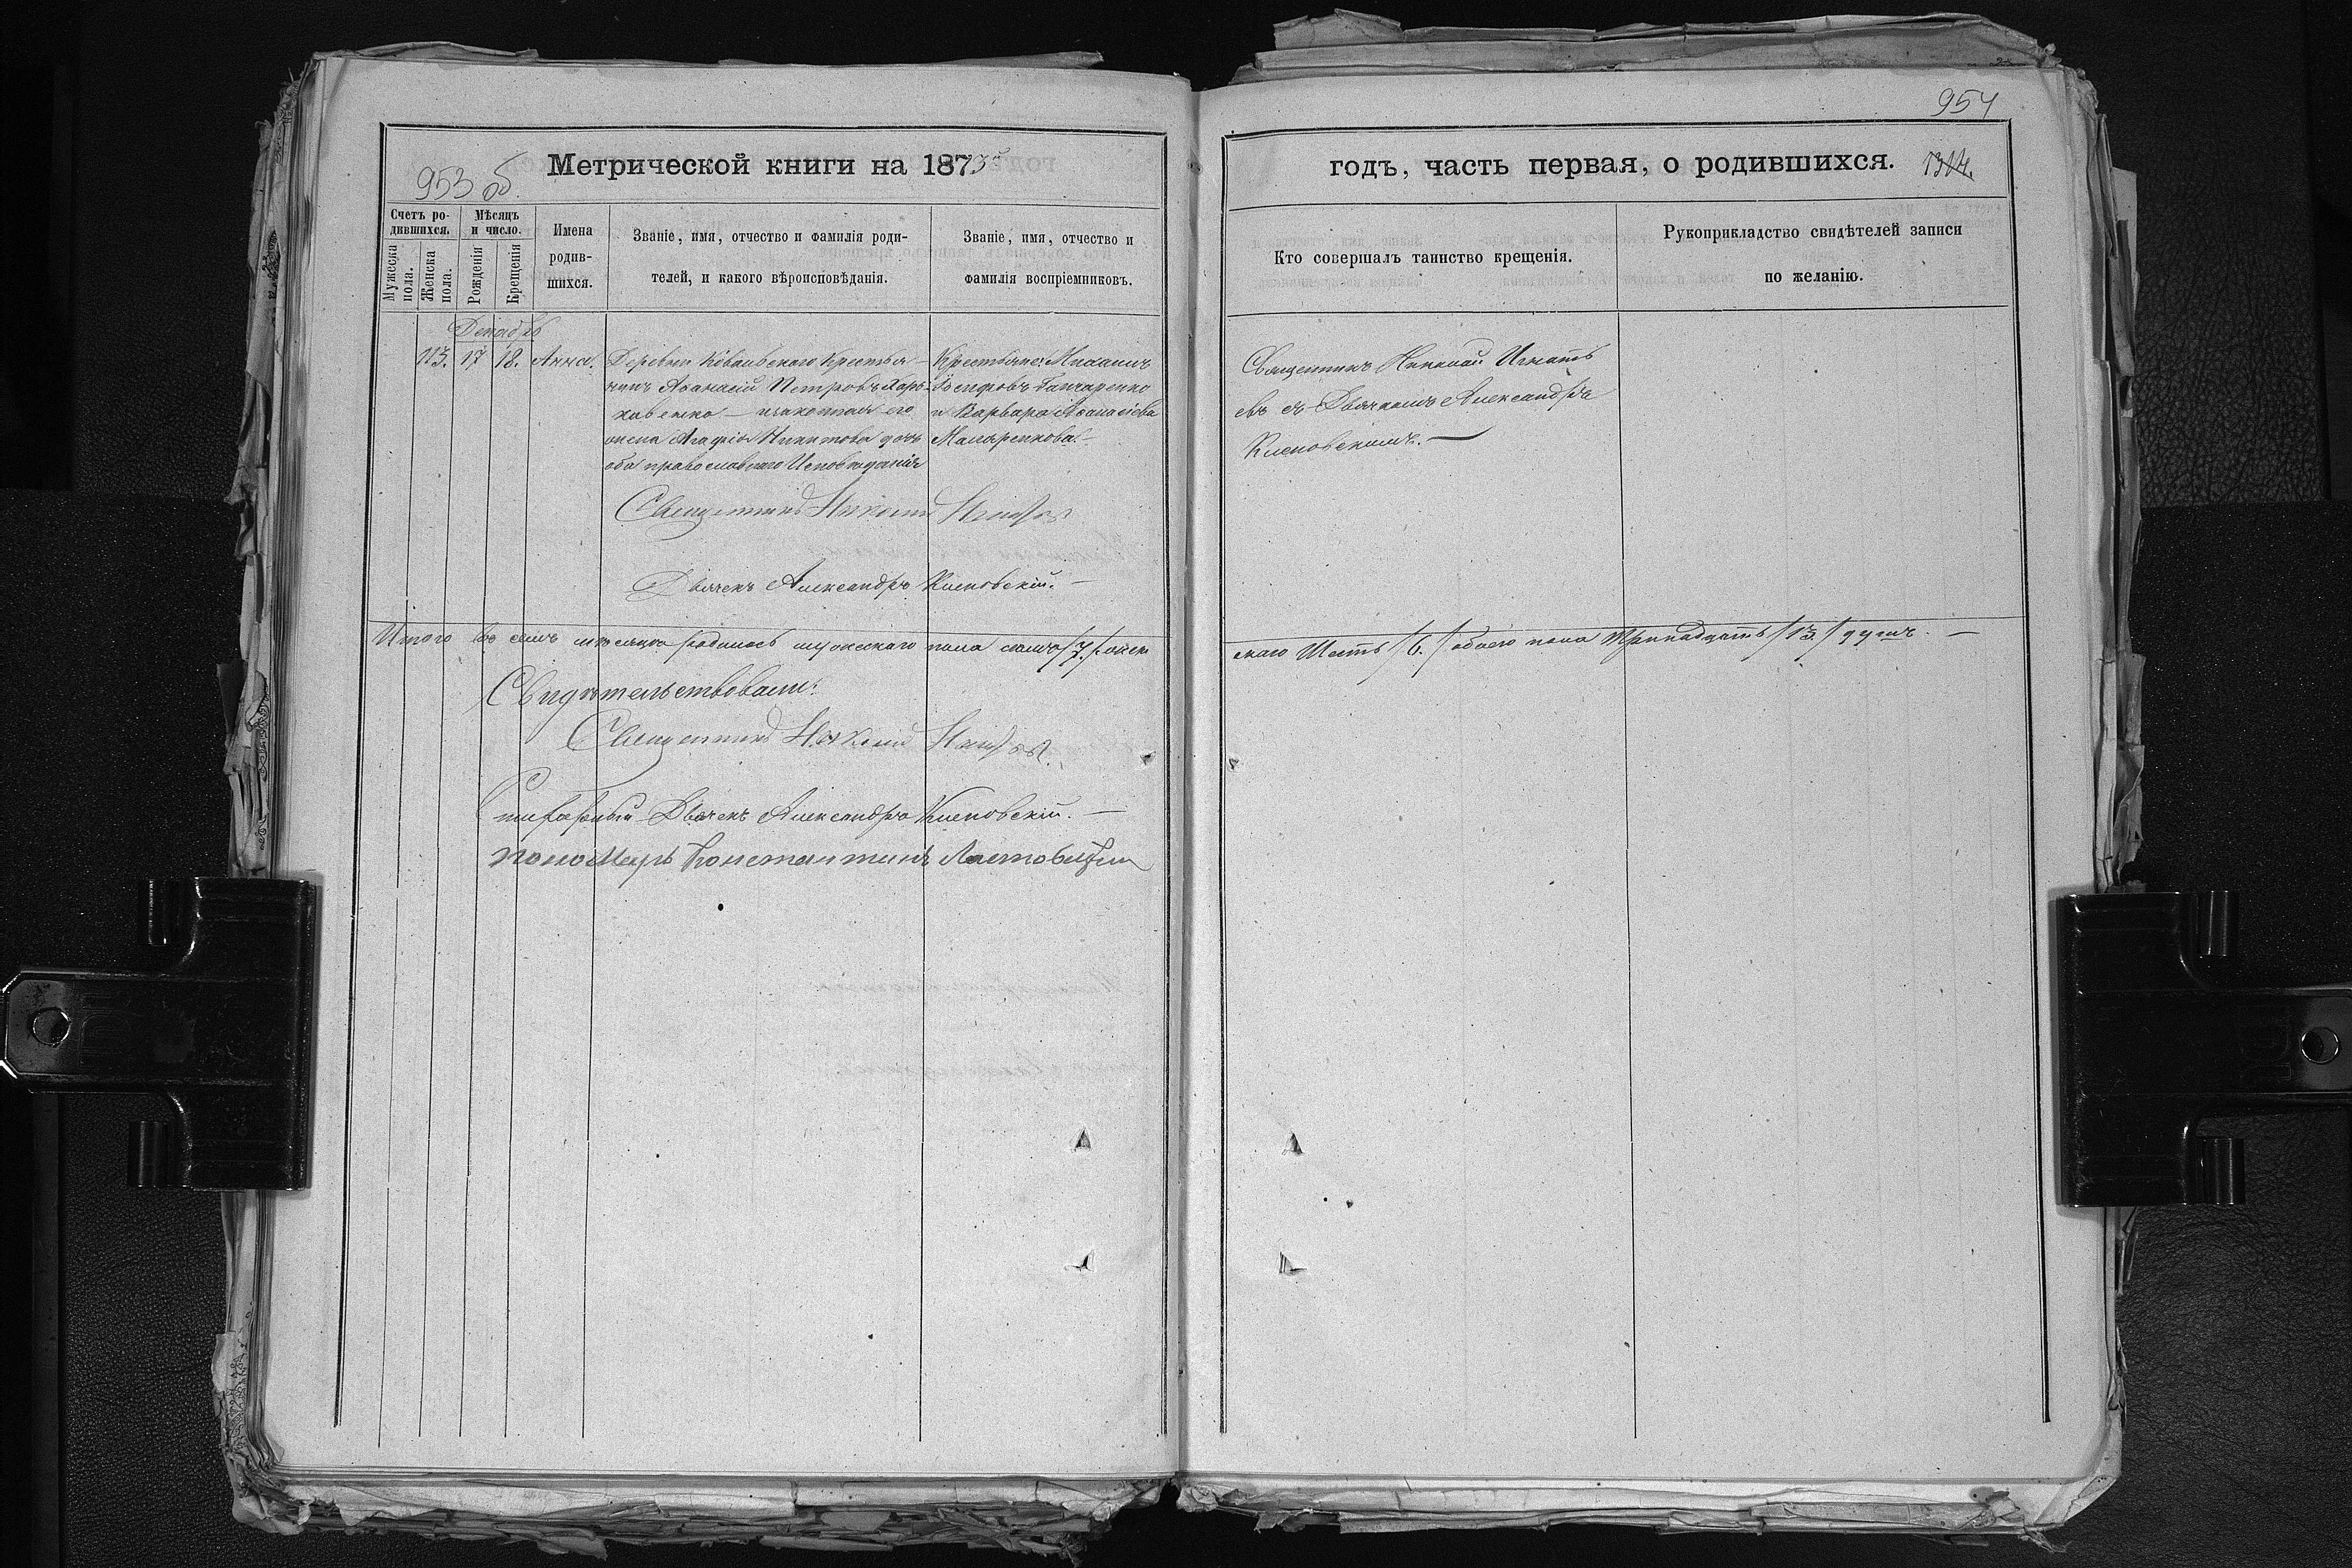 954
953 об.
Метрической книги на 1873й
годъ, часть первая, о родившихся. 1314.
Счетъ родившихся.
Мужеска пола.
Женска пола.
Мѣсяцъ и число.
Рожденія
Крещенія
Имена родившихся.
Званіе, имя, отчество и фамилія роди-
телей, и какого вѣроисповѣданія.
Званіе, имя, отчество и
фамилія воспріемниковъ.
Кто совершалъ таинство крещенія.
Рукоприкладство свидѣтелей записи
по желанію.
Декабрь
113. 17 18. Анна.
Деревни Крестья-
нинъ Аѳанасій Петровъ Харь-
ковенко — и законная его
жена Агафія Никитова дочь
оба православнаго Исповѣданія
Крестьяне: Михаилъ
Гончаренко
и Варвара Аѳанасіева
Священникъ Николай Игнать
евъ съ Дьячкомъ Александръ
Клеповскимъ. —
Священникъ Николай
Дьячекъ Александръ Клеповскій. —
Итого въ семъ мѣсяцѣ родилось мужескаго пола семь /7./ жен
скаго Шесть /6./ обоего пола Тринадцать /13./ душъ. —
Свидѣтельствовали:
Священникъ Николай
Стихарный Дьячекъ Александръ Клеповскій. —
пономарь Константинъ